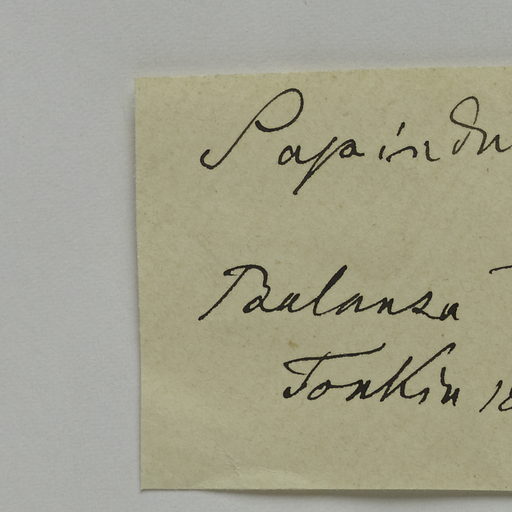 Sapindu
Balansa
Tonkin 18